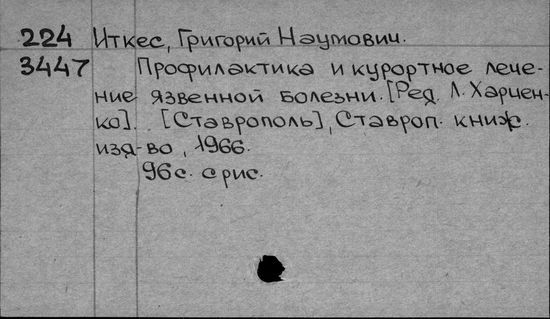 224 Иткес, Григорий Наумович.
3447 Профилактика и курортное лече-
ние язвенной болезни. [Ред. Л. Харчен-
ко]. [Ставрополь], Ставроп. книж.
изд-во, 1966.
96 с. с рис.